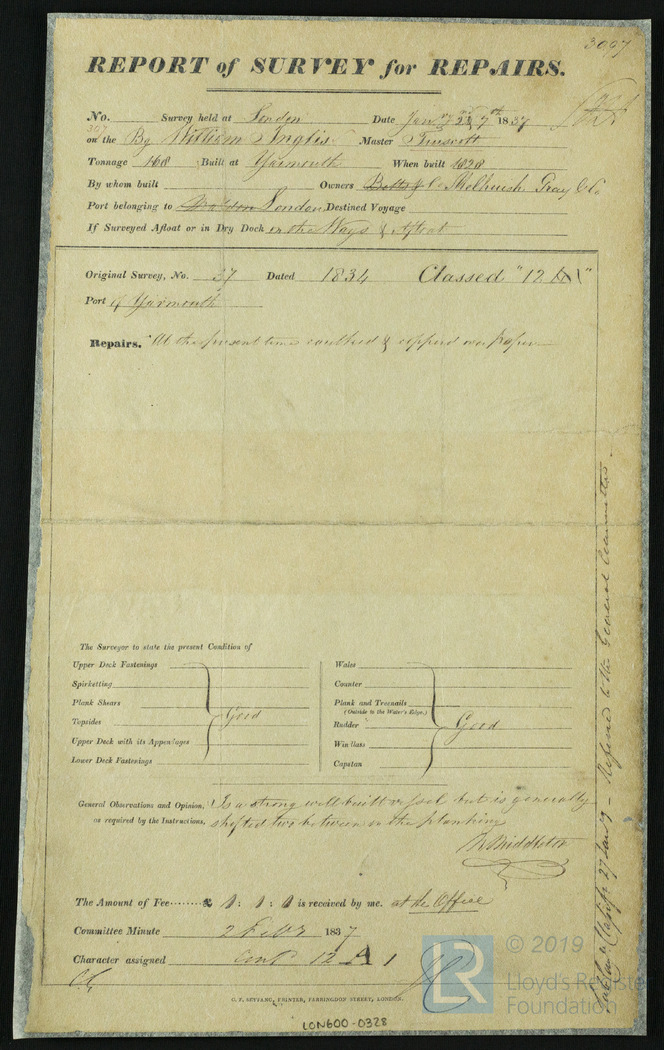 3007
REPORT of SURVEY for REPAIRS.
No. Survey held at London Date Jan 7th 1837
307
on the Bg William Inglis Master Truscott
Tonnage 168 Built at Yarmouth When built 1828
By whom built Owners Melhuish Gray & Co
Port belonging to London Destined Voyage
If Surveyed Afloat or in Dry Dock on the Ways & Afloat
Original Survey, No. 37 Dated 1834 Classed "12 A1"
Port of Yarmouth
Repairs. At the present time caulked & copperd over paper
The Surveyor to state the present Condition of
Upper Deck Fastenings
Spirketting
Plank Shears
Topsides
Upper Deck with its Appendages
Lower Deck Fastenings
Good
Wales
Counter
Plank and Treenails
(Outside to the Water's Edge.)
Rudder
Windlass
Capstan
Good
General Observations and Opinion, Is a strong well built vessel but is generally
as required by the Instructions, shifted two between in the planking
N Middleton
The Amount of Fee £ 1 : 1 : 0 is received by me. at the Office
Committee Minute 2 Feby 1837
Character assigned Cont 12 A 1
27 Jany - Referred to the General Committee
G. F. SEYFANG, PRINTER, FARRINGDON STREET, LONDON.
LON600-0328
LR
© 2019
Lloyd's Register
Foundation